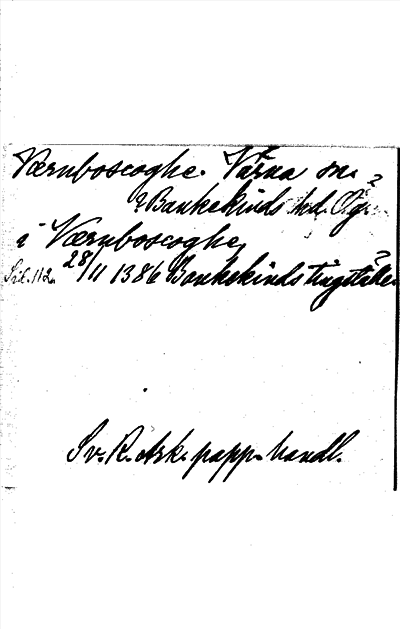 Værnboscoghe. Värna sn. ?
? Bankekinds hd. Ög.
i Værnboscoghe,
Sil. 112. 28/11 1386 Bankekinds tingställe ?
Sv. R. Ark. papp. handl.